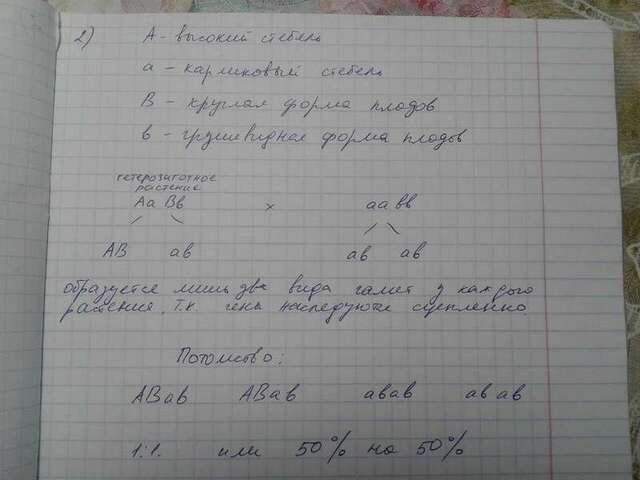 2) А - высокий стебель
а - карликовый стебель
В - круглая форма плодов
в - грушевидная форма плодов
гетерозиготное
растение
Аа Вв х аа вв
АВ ав ав ав
образуется лишь два вида гамет у каждого
растения, т.к. гены наследуются сцепленно.
Потомство:
АВав АВав авав ав ав
1:1. или 50% на 50%